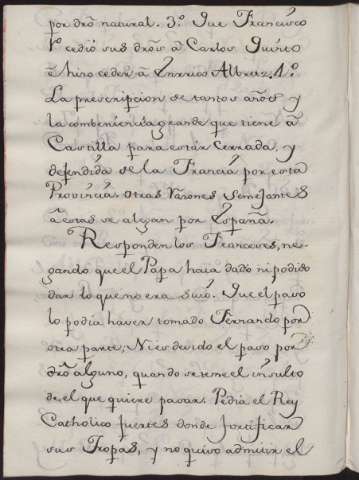 por dr̃o natural. 3.º Que Francisco
1º cedió sus dr̃os à Carlos Quinto
è hizo ceder à Enrrico Albret; 4.º
La prescripcion de tantos años y
la combeniencia grande que tiene à
Castilla para estàr Cerrada, y
defendida de la Francia por esta
Provincia. Otras Razones Semejantes
à estas se alegan por España.
Responden los Franceses, ne-
gando que el Papa haia dado ni podido
dar lo que no era suio. Que el paso
lo podia haver tomado Fernando por
otra parte; Ni es devido el paso por
dr̃o alguno, quando se teme el insulto
de el que quiere pasar. Pedia el Rey
Catholico fuertes donde fortificar
sus Tropas, y no quiso admitir el